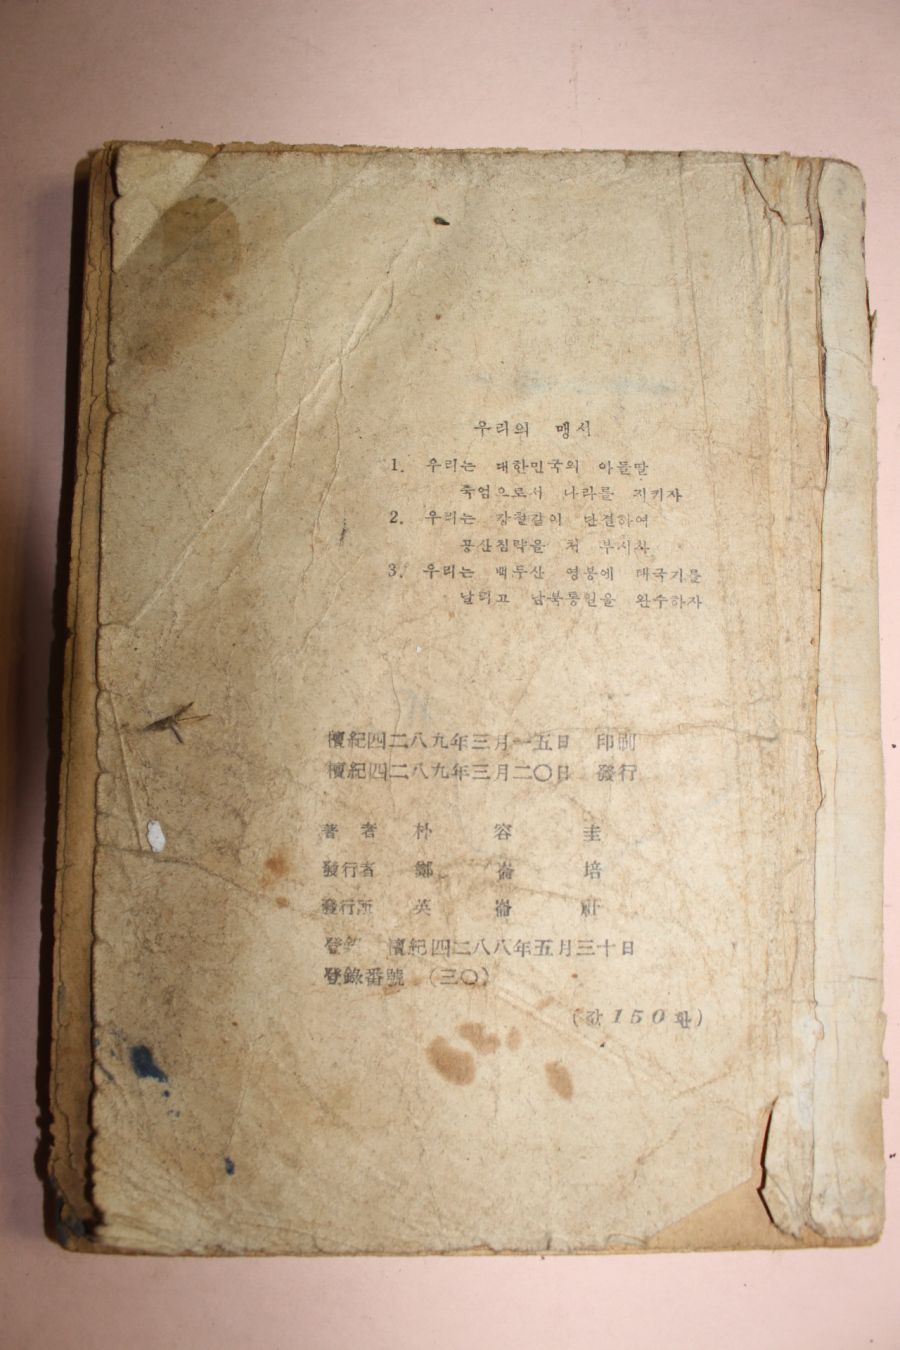 우리의 맹서
1. 우리는 대한민국의 아들딸
죽엄으로서 나라를 지키자
2. 우리는 강철같이 단결하여
공산침략을 처 부시자
3. 우리는 백두산 영봉에 태국기를
날리고 남북통일을 완수하자
檀紀四二八九年三月一五日 印刷
檀紀四二八九年三月二〇日 發行
著者 朴容圭
發行者 鄭崙培
發行所 英崙社
登錄 檀紀四二八八年五月三十日
登錄番號 (三〇)
(값 150환)